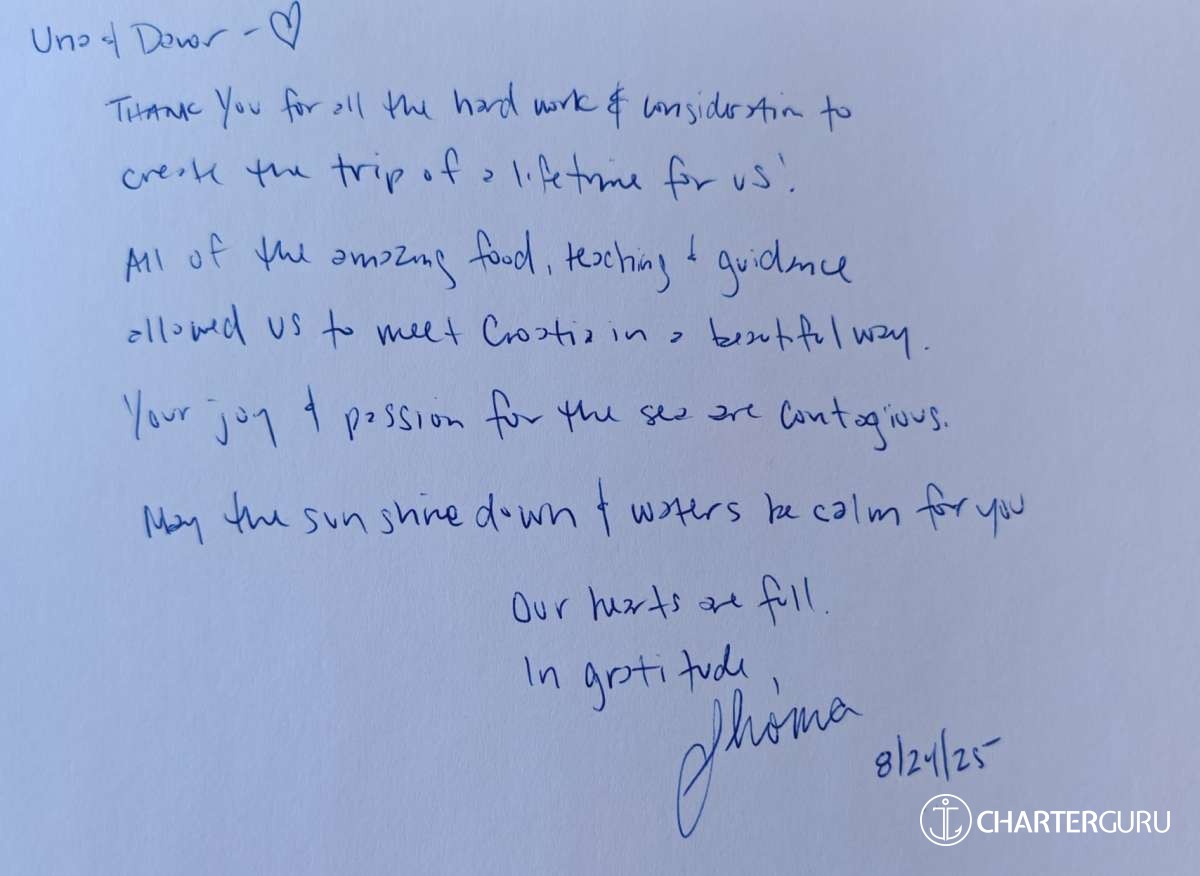 Una & Davor - ♡
THANK You for all the hard work & consideration to
create the trip of a lifetime for us!
All of the amazing food, teaching & guidance
allowed us to meet Croatia in a beautiful way.
Your joy & passion for the sea are contagious.
May the sun shine down & waters be calm for you
Our hearts are full.
In gratitude,
8/24/25
CHARTERGURU